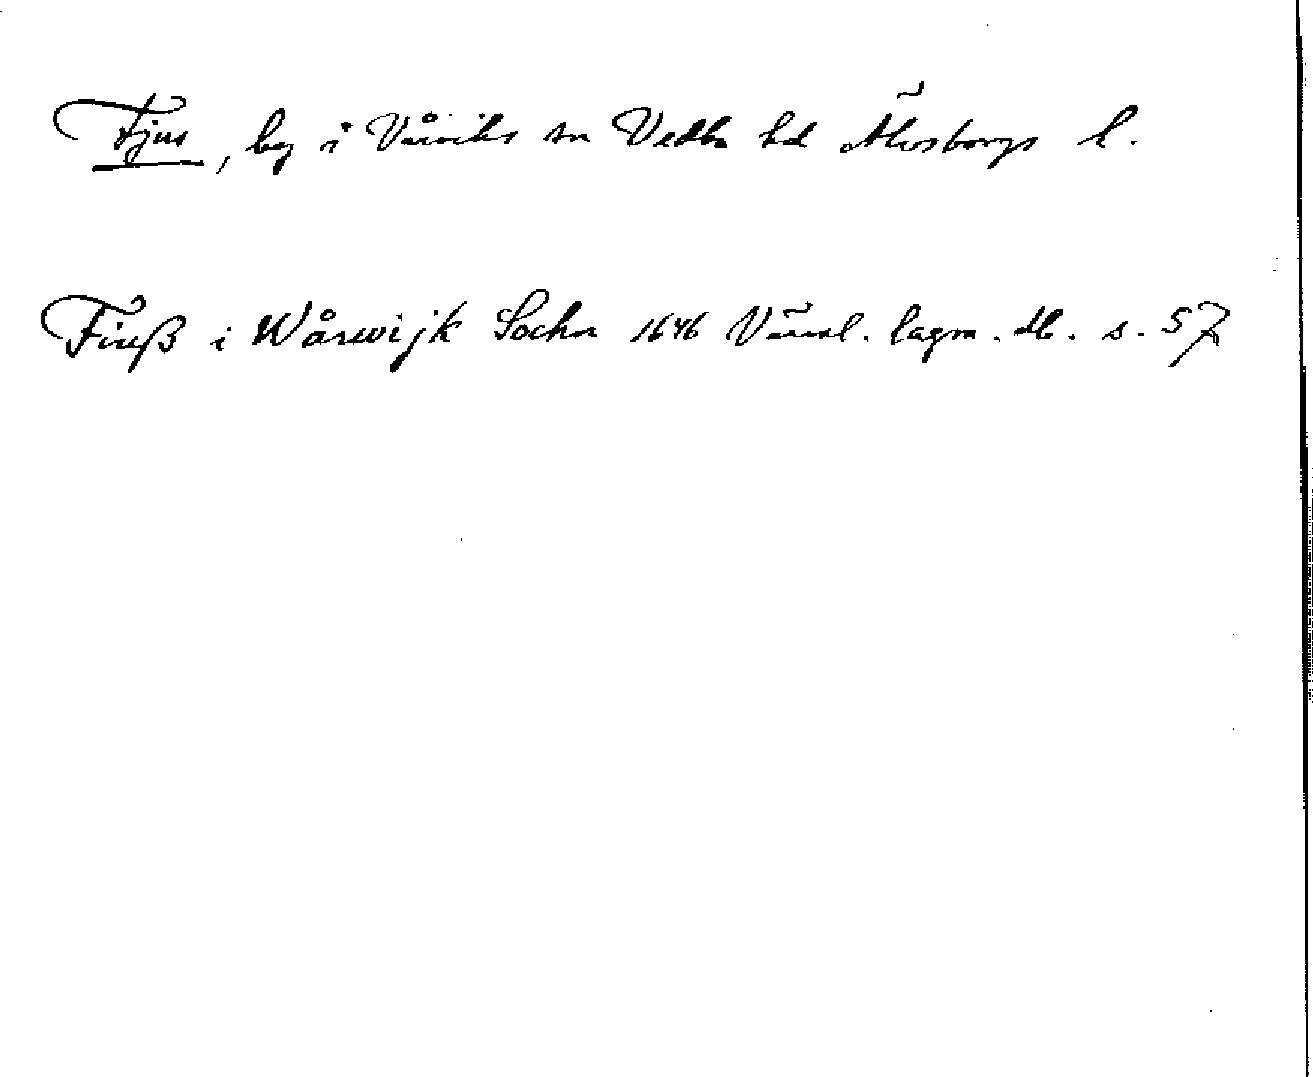 Fjus, by i Vårviks sn Vedbo hd Älvsborgs l.
Fiuß i Wårwijk Sochn 1646 Värml. lagm. db. s. 57